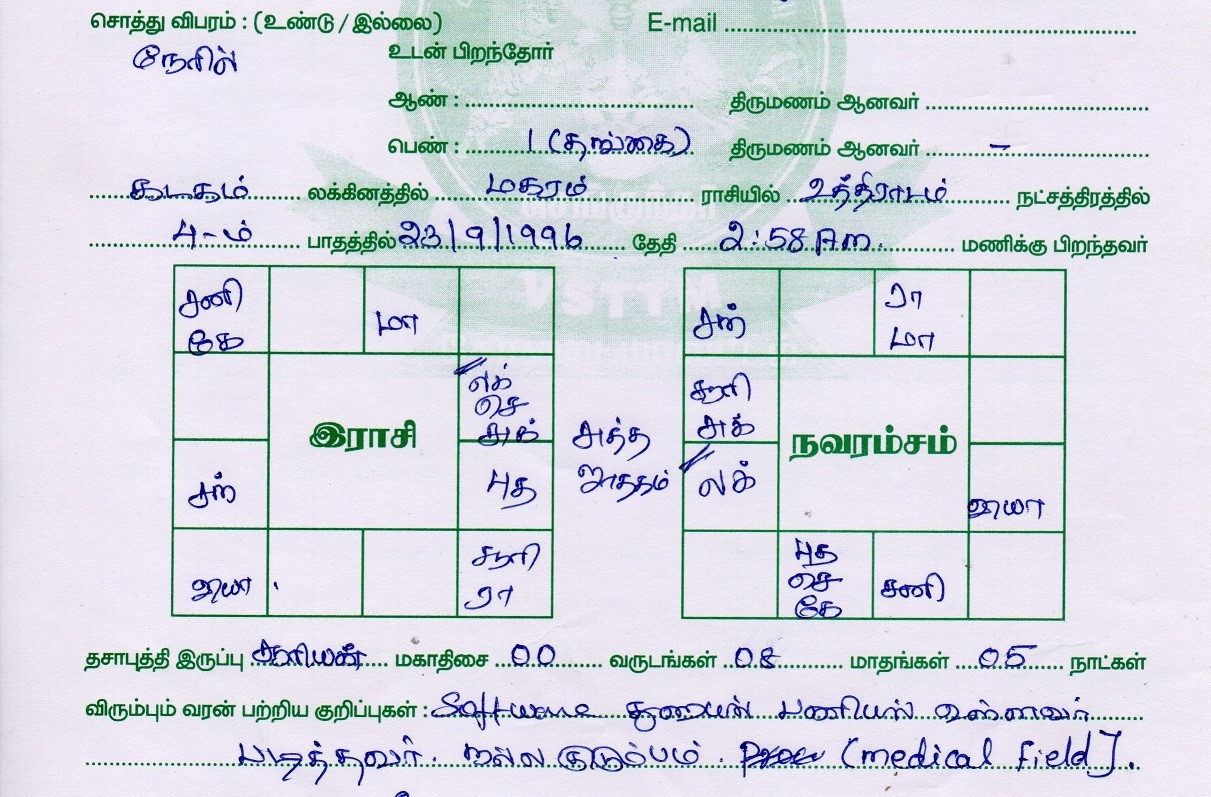 சொத்து விபரம் : (உண்டு / இல்லை) E-mail
நேரில் உடன் பிறந்தோர்
ஆண் : திருமணம் ஆனவர்
பெண் : 1 (தங்கை) திருமணம் ஆனவர் –
கடகம் லக்கினத்தில் மகரம் ராசியில் உத்திராடம் நட்சத்திரத்தில்
4-ம் பாதத்தில் 23/9/1996 தேதி 2:58 Am. மணிக்கு பிறந்தவர்
சனி
கே
மா
லக்
செ
சுக்
சந்
இராசி
புத
குயா
சூரி
ரா
அத்த
ஜாதகம்
சந்
ரா
மா
சூரி
சுக்
லக்
நவரம்சம்
குயா
புத
செ
கே
சனி
தசாபுத்தி இருப்பு சூரியன் மகாதிசை 00 வருடங்கள் 08 மாதங்கள் 05 நாட்கள்
விரும்பும் வரன் பற்றிய குறிப்புகள் : Software துறையில் பணியில் உள்ளவர்
படித்தவர். நல்ல குடும்பம். (medical field).